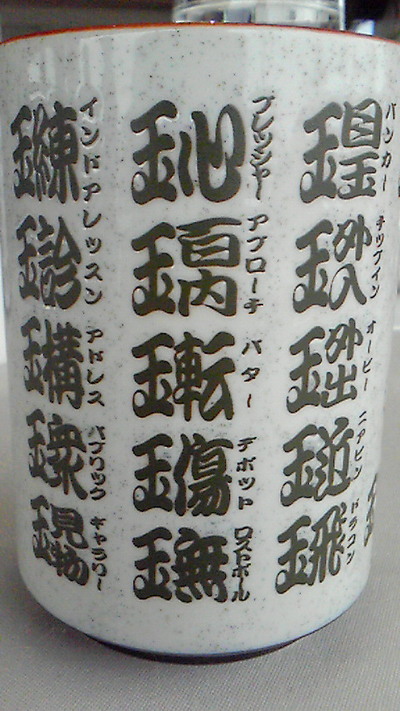 バンカー
玉外入 チップイン
玉外出 オービー
玉近 ニアピン
玉飛 ドラコン
玉心 プレッシャー
玉百内 アプローチ
玉転 パター
玉傷 ヂボット
玉無 ロストボール
玉練 インドア
玉診 レッスン
玉構 アドレス
玉衆 パブリック
玉見物 ギャラリー